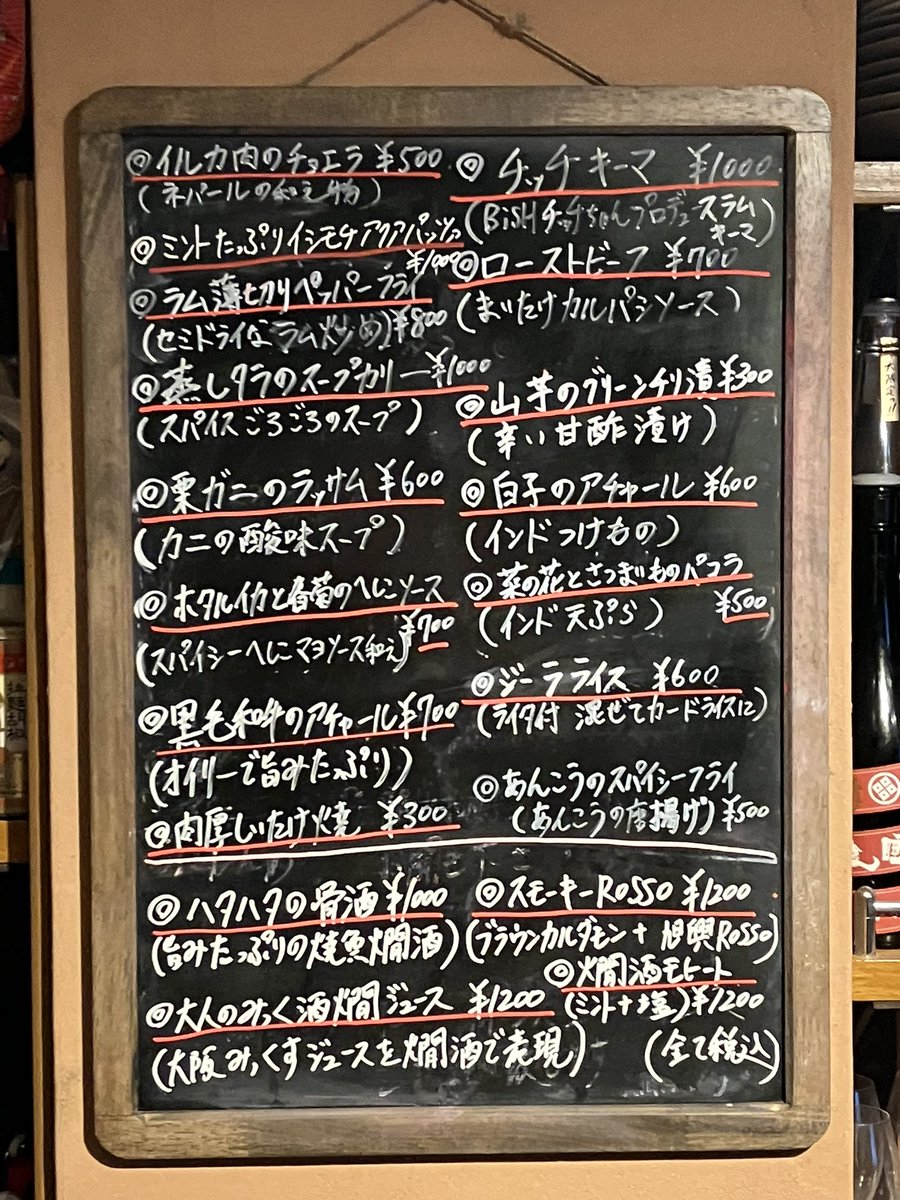 ◎イルカ肉のチョエラ ¥500
(ネパールの和え物)
◎ミントたっぷりイシモチアクアパッツァ
¥1000
◎ラム薄切りペッパーフライ
(セミドライなラム炒め)¥800
◎蒸しタラのスープカリー¥1000
(スパイスごろごろのスープ)
◎栗ガニのラッサム ¥600
(カニの酸味スープ)
◎ホタルイカと春菊のへしこソース
¥700
(スパイシーへしこマヨソース和え)
◎黒毛和牛のアチャール¥700
(オイリーで旨みたっぷり)
◎肉厚しいたけ焼 ¥300
◎チッチキーマ ¥1000
(BiSHチッチちゃんプロデュースラム
キーマ)
◎ローストビーフ ¥700
(まいたけカルパシソース)
◎山芋のグリーンチリ漬¥300
(辛い甘酢漬け)
◎白子のアチャール ¥600
(インドつけもの)
◎菜の花とさつまいものパコラ
¥500
(インド天ぷら)
◎ジーラライス ¥600
(ライタ付 混ぜてカードライスに)
◎あんこうのスパイシーフライ
(あんこうの唐揚げ) ¥500
◎ハタハタの骨酒 ¥1000
(旨みたっぷりの焼魚燗酒)
◎大人のみっく酒燗ジュース ¥1200
(大阪みっくすジュースを燗酒で表現)
◎スモーキーROSSO ¥1200
(ブラウンカルダモン+旭興ROSSO)
◎燗酒モヒート
(ミント+塩)¥1200
(全て税込)